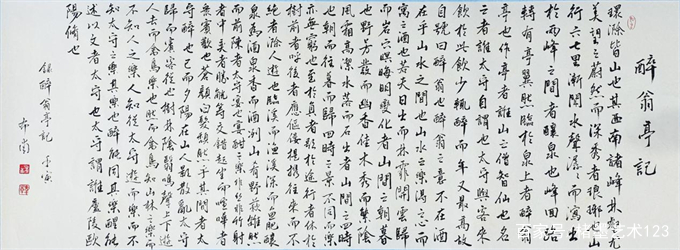 醉翁亭記
環滁皆山也其西南諸峰林壑尤
美望之蔚然而深秀者琅琊也山
行六七里漸聞水聲潺潺而瀉出
於兩峰之間者釀泉也峰回路
轉有亭翼然臨於泉上者醉翁
亭也作亭者誰山之僧智仙也名
之者誰太守自謂也太守與客來
飲於此飲少輒醉而年又最高故
自號曰醉翁也醉翁之意不在酒
在乎山水之間也山水之樂得之心而
寓之酒也若夫日出而林霏開雲歸
而岩穴暝晦明變化者山間之朝暮
也野芳發而幽香佳木秀而繁陰
風霜高潔水落而石出者山間之四時
也朝而往暮而歸四時之景不同而樂
亦無窮也至於負者歌於途行者休於
樹前者呼後者應傴僂提攜往來而不
絕者滁人遊也臨溪而漁溪深而魚肥釀
泉為酒泉香而酒洌山肴野蔌雜然
而前陳者太守宴也宴酣之樂非絲非竹射
者中弈者勝觥籌交錯起坐而喧嘩者
眾賓歡也蒼顏白髮頹然乎其間者太
守醉也已而夕陽在山人影散亂太守
歸而賓客從也樹林陰翳鳴聲上下遊
人去而禽鳥樂也然而禽鳥知山林之樂而
不知人之樂人知從太守遊而樂而不
知太守之樂其樂也醉能同其樂醒能
述以文者太守也太守謂誰廬陵歐
陽脩也
錄醉翁亭記 壬寅
百家号/格墨艺术123